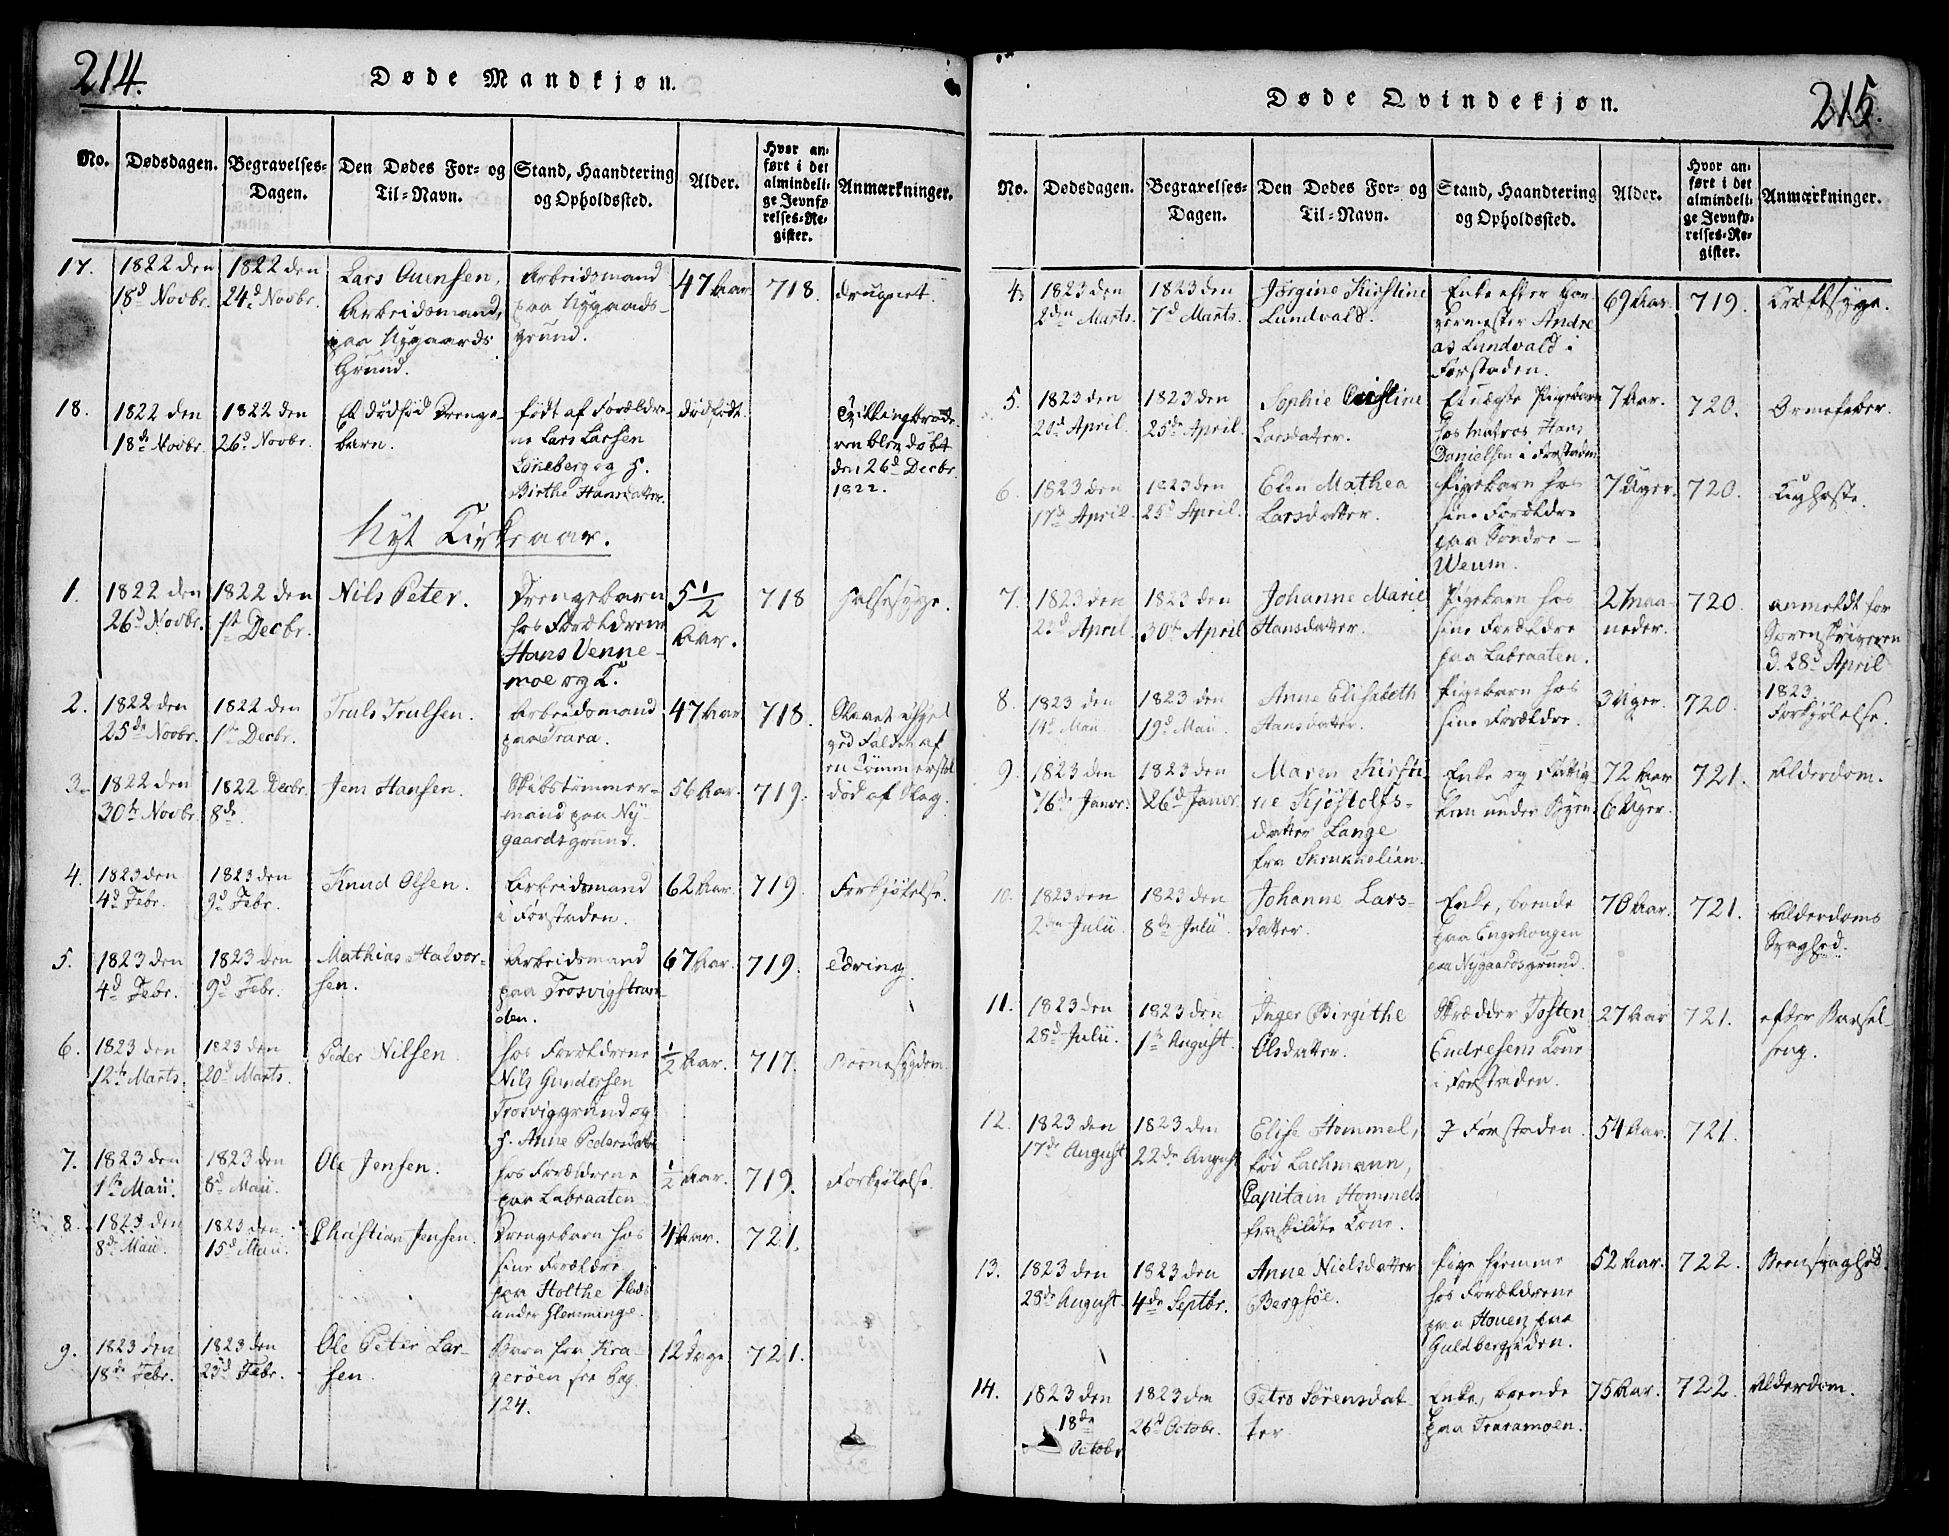 214.
Døde Mandkjøn.
No. Dødsdagen. Begravelses-Dagen. Den Dødes For- og Til-Navn. Stand, Haandtering og Opholdssted. Alder. Hvor anført i det almindelige Jevnførelses-Register. Anmærkninger.
17. 1822 den 18d Novbr. 1822 den 24d Novbr. Lars Ouensen, Arbeidsmand, paa Nygaards Grund. Arbeidsmand paa Nygaards-grund. 47 Aar 718. druknet.
18. 1822 den 18de Novbr. 1822 den 26d Novbr. Et dødfød Drengebarn. født af Forældrene Lars Larsen Løneberg og H. Birthe Hansdatter. dødfødt. Tvillingbroderen blev døbt den 26d Decbr 1822.
Nyt Kirkeaar.
1. 1822 den 26d Novbr. 1822 den 1st Decbr. Nils Peter. Drengebarn hos Forældrene Hans Vennemoe og K. 5 1/2 Aar. 718 Halssyge.
2. 1822 den 25de Novbr. 1822 den 1ste Decbr. Truls Trulsen. Arbeidsmand paa Trara. 47 Aar 718. Slaaet ihjel ved Faldet af en Tømmerstok
3. 1822 den 30te Novbr. 1822 Decbr. 8de. Jens Hansen. Skibstømmermand paa Nygaardsgrund. 56 Aar. 719. død af Slag.
4. 1823 den 4d Febr. 1823 den 9d Febr. Knud Olsen. Arbeidsmand i Forstaden. 62 Aar. 719. Forkjølelse.
5. 1823 den 4d Febr. 1823 den 9d Febr. Mathias Halvorsen. Arbeidsmand paa Trosvigstranden. 67 Aar. 719. Tæring.
6. 1823 den 12te Marts. 1823 den 20d Marts. Peder Nilsen. hos Forældrene Nils Gundersen Trosviggrund og H. Anne Pedersdatter 1/2 Aar. 717. Børnesygdom.
7. 1823 den 1ste Maii. 1823 den 8d Maii. Ole Jensen. hos Forældrene paa Labraaten. 1/2 Aar. 719. Forkjølelse.
8. 1823 den 8de Maii. 1823 den 15d Maii. Christian Jensen. Drengebarn hos sine Forældre paa Holthe Plads under Glemminge. 4 Aar. 721.
9. 1823 den 18de Febr. 1823 den 23d Febr. Ole Peter Larsen. Barn fra Kragerøen fra Pag. 124. 12 Dage 721.
215.
Døde Qvindekjøn.
No. Dødsdagen. Begravelses-Dagen. Den Dødes For- og Til-Navn. Stand, Haandtering og Opholdssted. Alder. Hvor anført i det almindelige Jevnførelses-Register. Anmærkninger.
4. 1823 den 2den Marts. 1823 den 7d Marts. Jørgine Kirstine Lundvald. Enke efter Garvermester Andreas Lundvald i Forstaden. 69 Aar. 719. Kræftsyge.
5. 1823 den 20d April. 1823 den 25de April. Sophie Christine Larsdatter. Et uægte Pigebarn hos Matros Hans Danielsen i Forstaden 7 Aar. 720. Ormefeber.
6. 1823 den 17d April. 1823 den 25d April. Elen Mathea Larsdatter. Pigebarn hos sine Forældre paa Søndre-Weum. 7 Uger. 720. Kighoste.
7. 1823 den 23d April. 1823 den 30te April Johanne Marie Hansdatter. Pigebarn hos sine Forældre paa Labraaten. 2 Maaneder. 720. anmeldt for Sorenskriveren d. 28d April 1823.
8. 1823 den 14d Maii 1823 den 19d Maii. Anne Elisabeth Hansdatter. Pigebarn hos sine Forældre. 3 Uger. 720. Forkjølelse.
9. 1823 den 16de Janvr. 1823 den 26d Janvr. Maren Kirstine Kjøstolfsdatter Lange fra Skrukkelien. Enke og Fattiglem under Byen. 72 Aar 6 Uger. 721. Alderdom.
10. 1823 den 2den Julii 1823 den 8de Julii. Johanne Larsdatter. Enke, boende paa Engehougen paa Nygaardsgrund. 70 Aar. 721. Alderdoms Svaghed.
11. 1823 den 28d Julii. 1823 den 1ste August. Inger Birgithe Olsdatter. Skrædder Tosten Endresens Kone i Forstaden. 27 Aar 721. efter Barselseng.
12. 1823 den 17de August 1823 den 22de August Elise Hommel, fød Lachmann, Capitain Hommels fraskildte Kone. I Forstaden. 54 Aar. 721.
13. 1823 den 28de August. 1823 den 4de Septbr. Anne Nielsdatter Bergføe. Pige hjemme hos Forældrene paa Houen paa Guldbergsiden. 52 Aar. 722. Brystsvaghed.
14. 1823 den 18de Octobr 1823 den 26d Octobr. Petro Sørensdatter Enke, boende paa Traramoen. 75 Aar. 722. Alderdom.